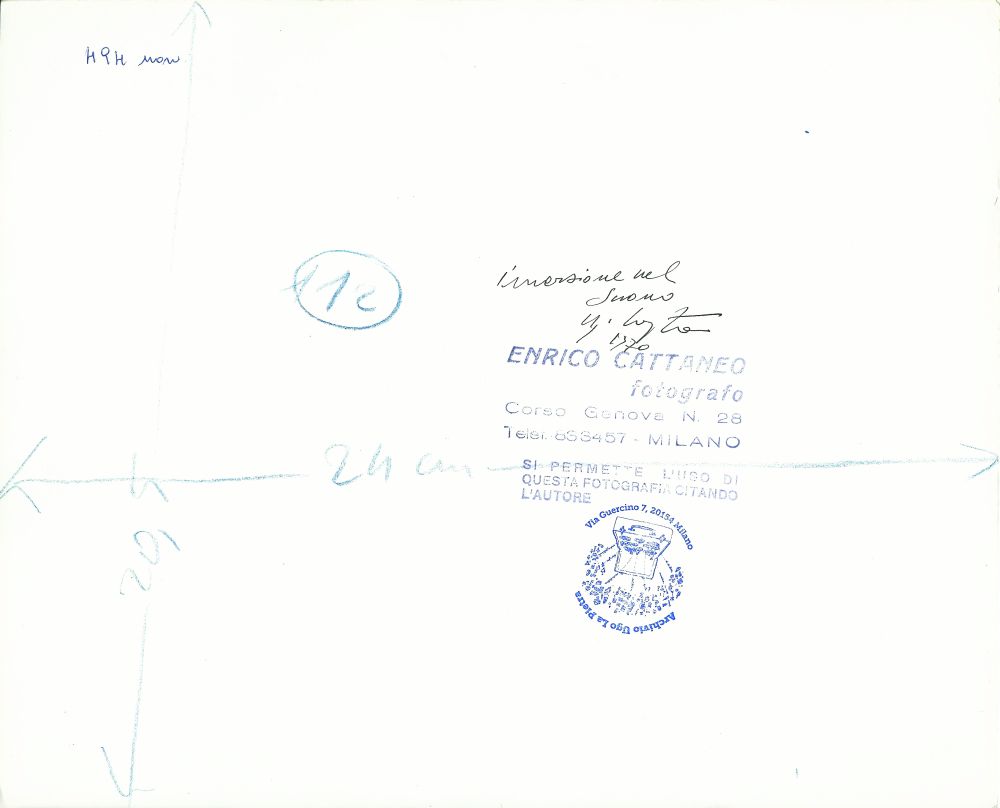 immersione nel
suono
1970
12
ENRICO CATTANEO
fotografo
Corso Genova N. 28
MILANO
24 cm
SI PERMETTE L'USO DI
QUESTA FOTOGRAFIA CITANDO
L'AUTORE
20
Via Guercino 7, 20154 Milano
Archivio Ugo La Pietra